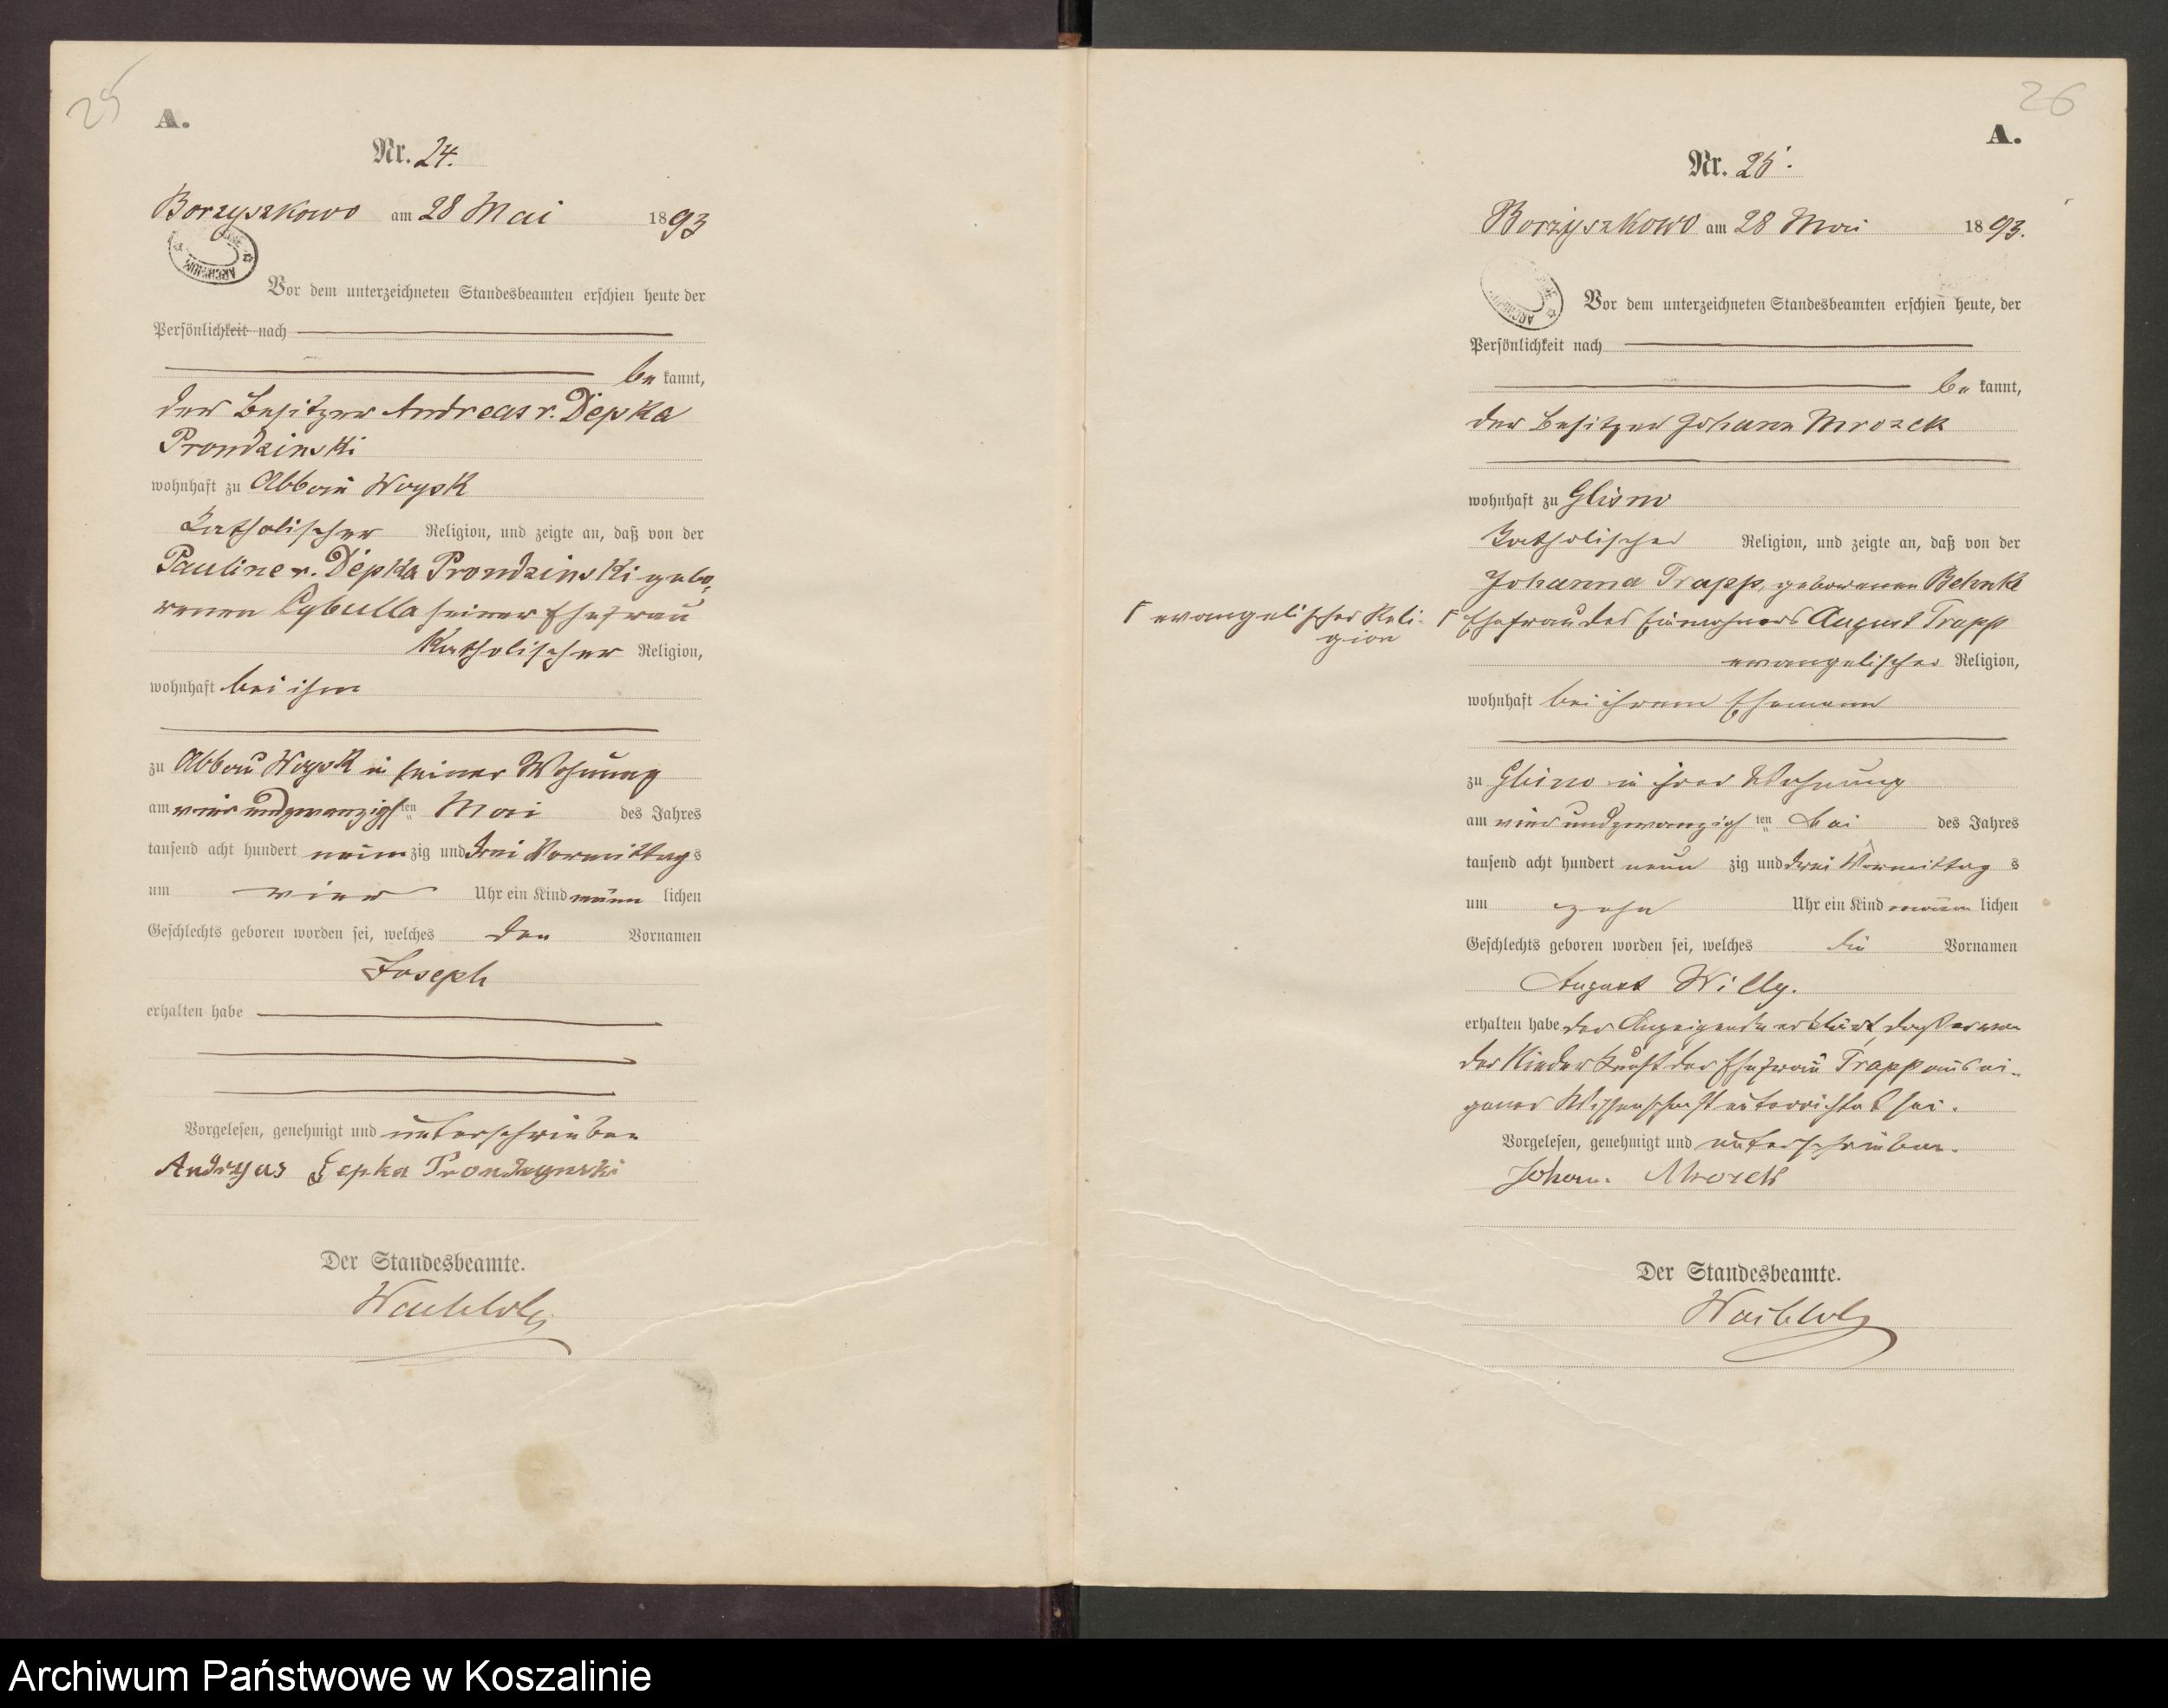 25
A.
Nr. 24.
Borzyszkowo am 28 Mai 1893
ARCHIWUM
Vor dem unterzeichneten Standesbeamten erschien heute der
Persönlichkeit nach
be kannt,
der Besitzer Andreas v. Depka
Prondzinski
wohnhaft zu Abbau Woysk
katholischer Religion, und zeigte an, daß von der
Pauline v. Depka Prondzinski gebo-
renen Cybulla seiner Ehefrau
katholischer Religion,
wohnhaft bei ihm
zu Abbau Woysk in seiner Wohnung
am vier und zwanzigsten ten Mai des Jahres
tausend acht hundert neun zig und drei Vormittag s
um vier Uhr ein Kind männ lichen
Geschlechts geboren worden sei, welches den Vornamen
Joseph
erhalten habe
Vorgelesen, genehmigt und unterschrieben
Andryas Depka Prondzynski
Der Standesbeamte.
26
A.
Nr. 25.
Borzyszkowo am 28 Mai 1893.
ARCHIWUM
Vor dem unterzeichneten Standesbeamten erschien heute, der
Persönlichkeit nach
be kannt,
der Besitzer Johann Mrozek
wohnhaft zu Glisno
katholischer Religion, und zeigte an, daß von der
Johanna Trapp, geborenen Behnke
Γ evangelischer Reli-
gion
Γ Ehefrau des Einwohners August Trapp
evangelischer Religion,
wohnhaft bei ihrem Ehemann
zu Glisno in ihrer Wohnung
am vier und zwanzigs ten Mai des Jahres
tausend acht hundert neun zig und drei Vormittag s
um zehn Uhr ein Kind männ lichen
Geschlechts geboren worden sei, welches die Vornamen
August Willy.
erhalten habe der Anzeigende erklärt, daß er von
der Niederkunft der Ehefrau Trapp aus ei-
gener Wissenschaft unterrichtet sei.
Vorgelesen, genehmigt und unterschrieben.
Johann Mrozek
Der Standesbeamte.
Archiwum Państwowe w Koszalinie